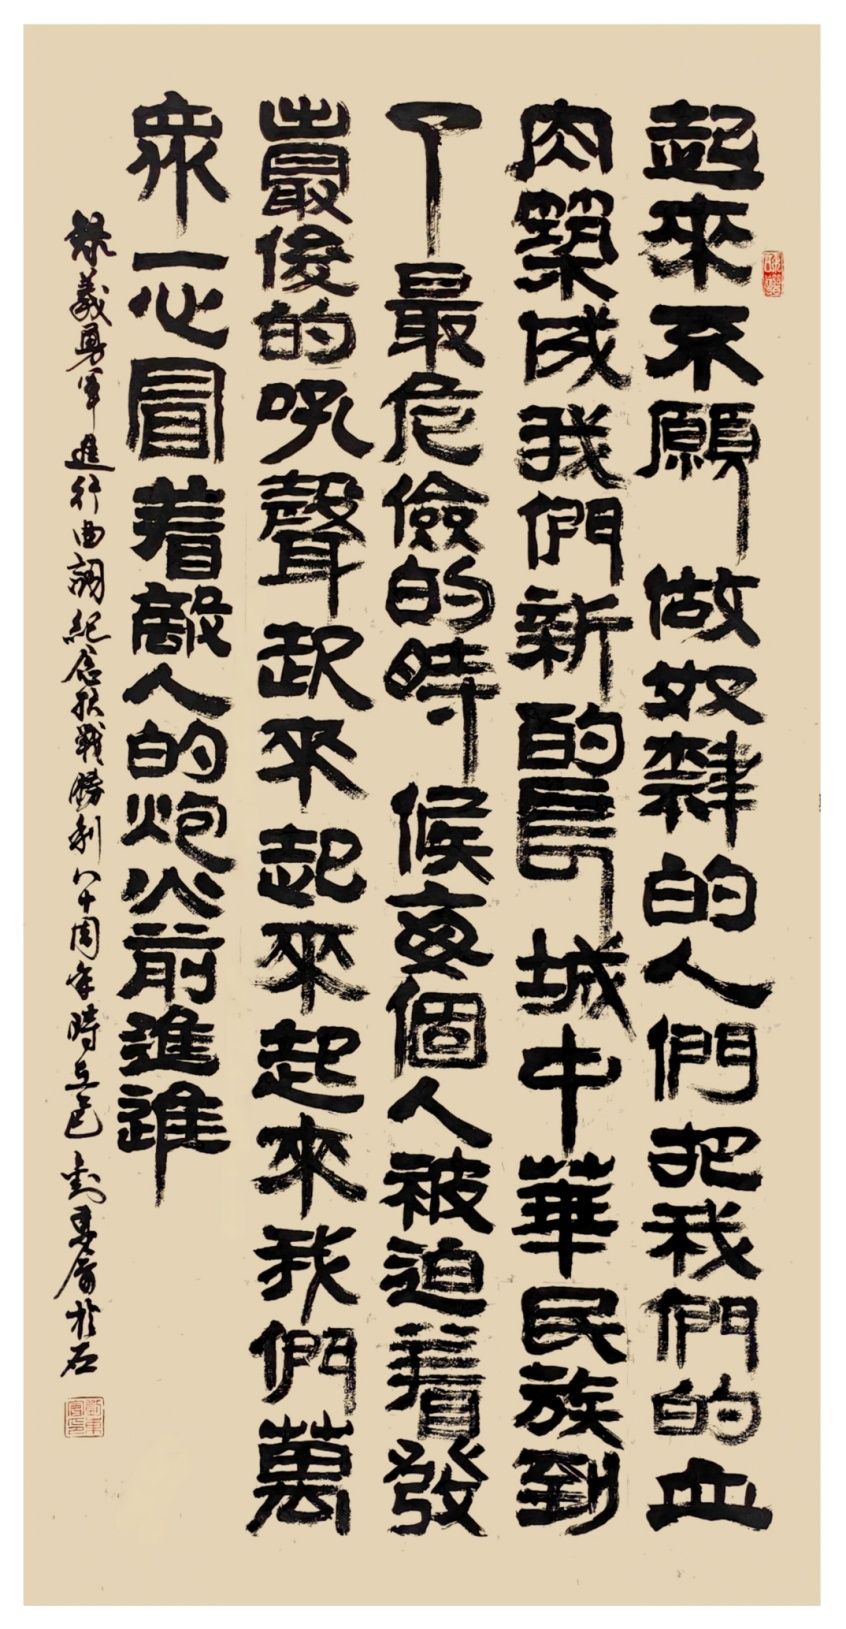 起來不願做奴隸的人們把我們的血
肉築成我們新的長城中華民族到
了最危險的時候每個人被迫着發
出最後的吼聲起來起來起來我們萬
衆一心冒着敵人的炮火前進進
錄義勇軍進行曲詞紀念抗戰勝利八十周年時乙巳 劉 於石